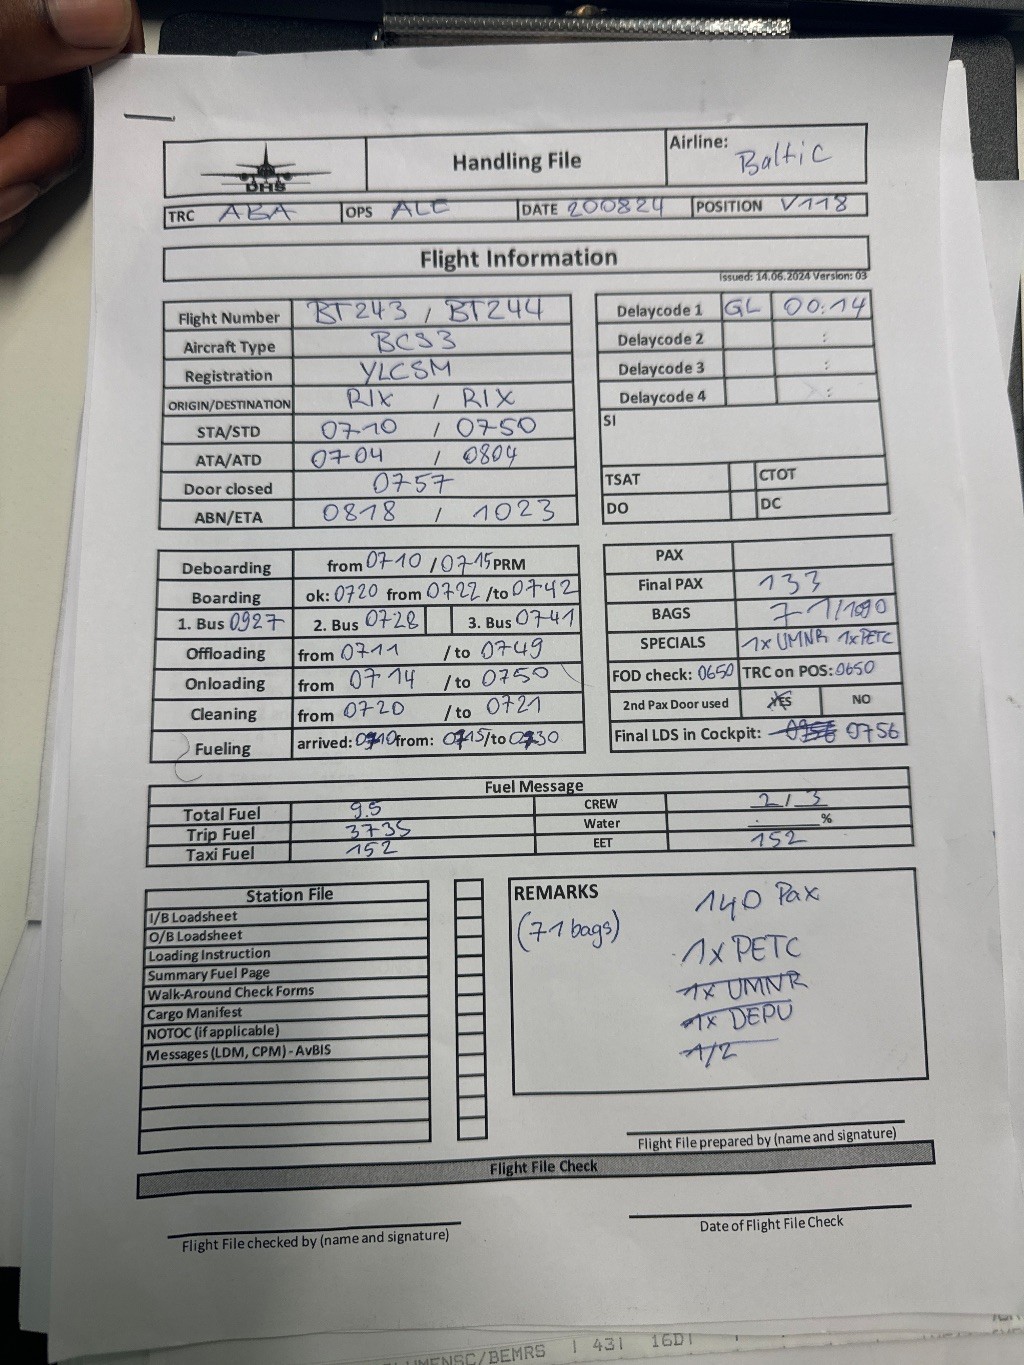 DHS
Handling File
Airline: Baltic
TRC ABA OPS ALE DATE 200824 POSITION V118
Flight Information
Issued: 14.06.2024 Version: 03
Flight Number BT243 / BT244
Aircraft Type BCS3
Registration YLCSM
ORIGIN/DESTINATION RIX / RIX
STA/STD 0710 / 0750
ATA/ATD 0704 / 0804
Door closed 0757
ABN/ETA 0818 / 1023
Delaycode 1 GL 00:14
Delaycode 2 :
Delaycode 3 :
Delaycode 4 :
SI
TSAT CTOT
DO DC
Deboarding from 0710 / 0715 PRM
Boarding ok: 0720 from 0722 /to 0742
1. Bus 0927 2. Bus 0728 3. Bus 0741
Offloading from 0711 / to 0749
Onloading from 0714 / to 0750
Cleaning from 0720 / to 0721
Fueling arrived: 0710 from: 0715 /to 0730
PAX
Final PAX 133
BAGS 71/1090
SPECIALS 1x UMNR 1x PETC
FOD check: 0650 TRC on POS: 0650
2nd Pax Door used YES NO
Final LDS in Cockpit: 0756
Fuel Message
Total Fuel 9.5 CREW 2 / 3
Trip Fuel 3735 Water %
Taxi Fuel 152 EET 152
Station File
I/B Loadsheet
O/B Loadsheet
Loading Instruction
Summary Fuel Page
Walk-Around Check Forms
Cargo Manifest
NOTOC (if applicable)
Messages (LDM, CPM) - AvBIS
REMARKS
140 Pax
(71 bags)
1x PETC
1x UMNR
1x DEPU
A/Z
Flight File prepared by (name and signature)
Flight File Check
Flight File checked by (name and signature)
Date of Flight File Check
/BEMRS | 43| 16D|